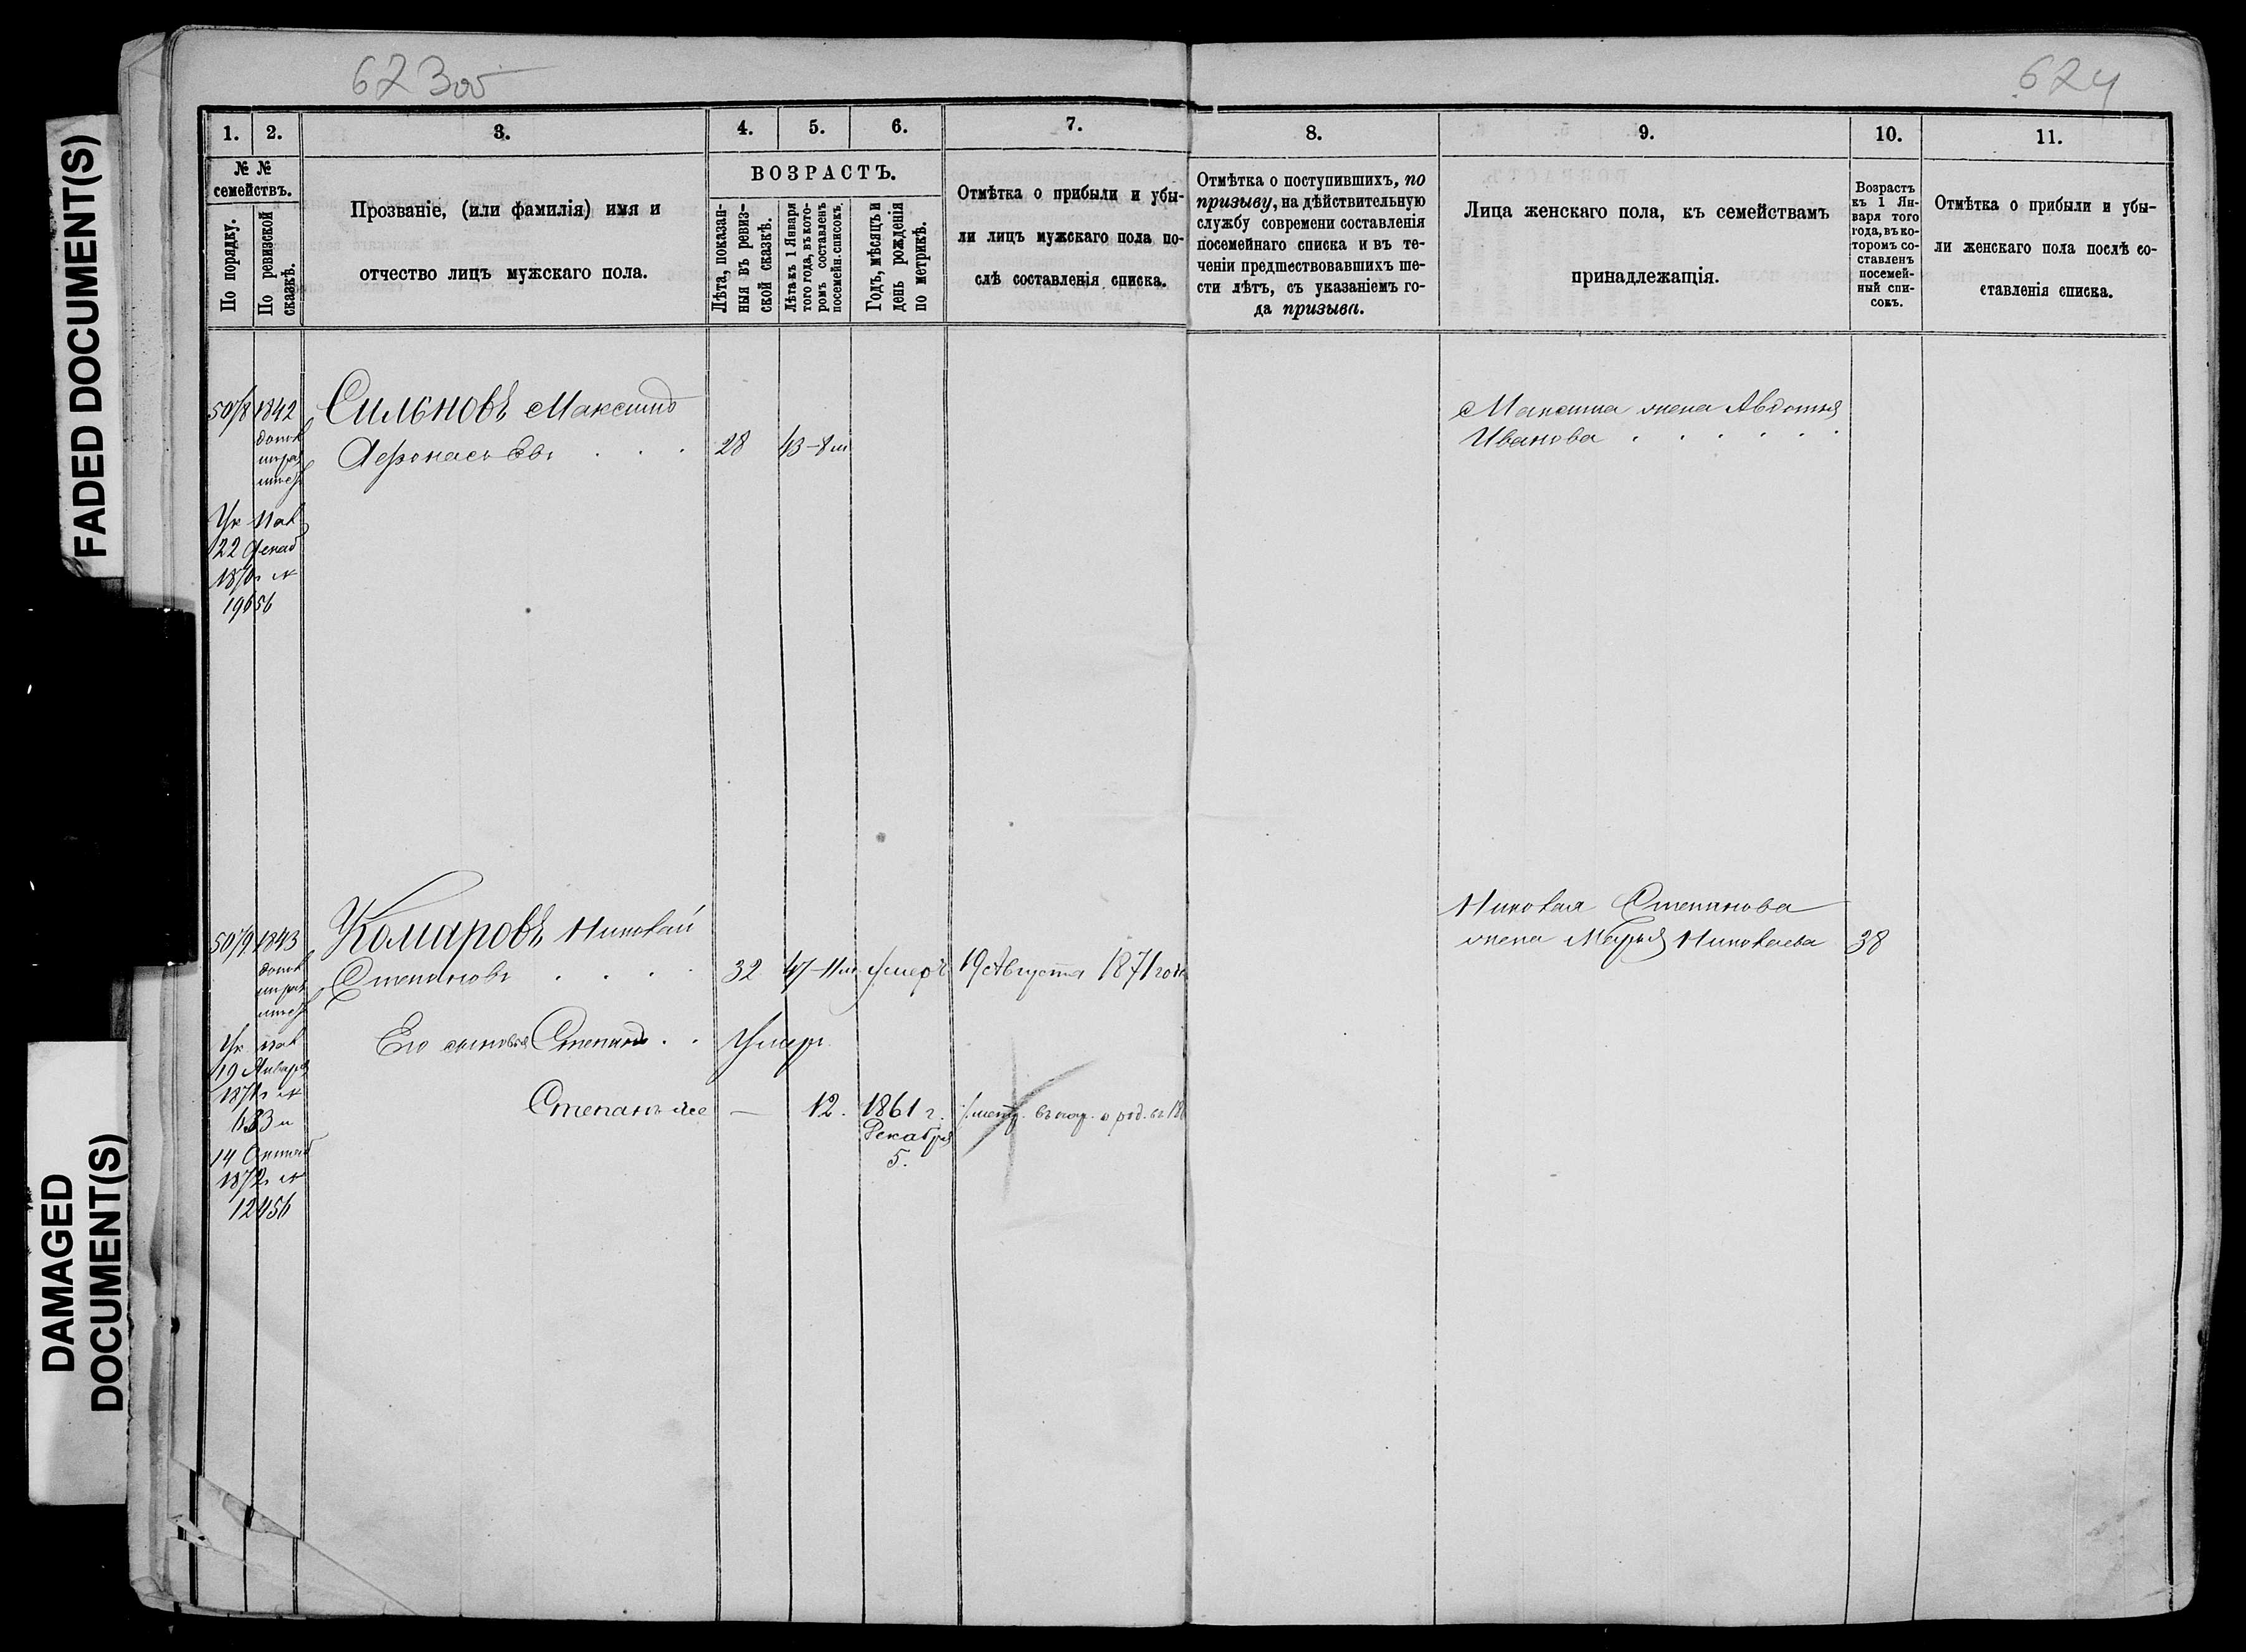 FADED DOCUMENT(S)
DAMAGED
DOCUMENT(S)
623об
624
1.
2.
3.
4.
5.
6.
7.
8.
9.
10.
11.
№ №
семействъ.
По порядку.
По ревизской
сказкѣ.
Прозваніе, (или фамилія) имя и
отчество лицъ мужскаго пола.
ВОЗРАСТЪ.
Лѣта, показан-
ныя въ ревиз-
ской сказкѣ.
Лѣта къ 1 Января
того года, въ кото-
ромъ составленъ
посемейн. списокъ.
Годъ, мѣсяцъ и
день рожденія
по метрикѣ.
Отмѣтка о прибыли и убы-
ли лицъ мужскаго пола по-
слѣ составленія списка.
Отмѣтка о поступившихъ, по
призыву, на дѣйствительную
службу современи составленія
посемейнаго списка и въ те-
ченіи предшествовавшихъ ше-
сти лѣтъ, съ указаніемъ го-
да призыва.
Лица женскаго пола, къ семействамъ
принадлежащія.
Возрастъ
къ 1 Ян-
варя того
года, въ ко-
торомъ со-
ставленъ
посемей-
ный спи-
сокъ.
Отмѣтка о прибыли и убы-
ли женскаго пола послѣ со-
ставленія списка.
1842
Сильновъ Максимъ
Максима жена Авдотья
Афонасьевъ . . . 28 43
Ивановa . . . . . .
22 Декаб
19656
1843
Комаровъ Николай
Николая Степанова
жена Марья Николаева 38
Степановъ . . . 32 47 умеръ 19 Августа 1871 года
Его сыновья Степанъ . . Умеръ
19 Января
Степанъ же — 12. 1861 г.
Декабря
5.
14 Октяб
1872 №
12456